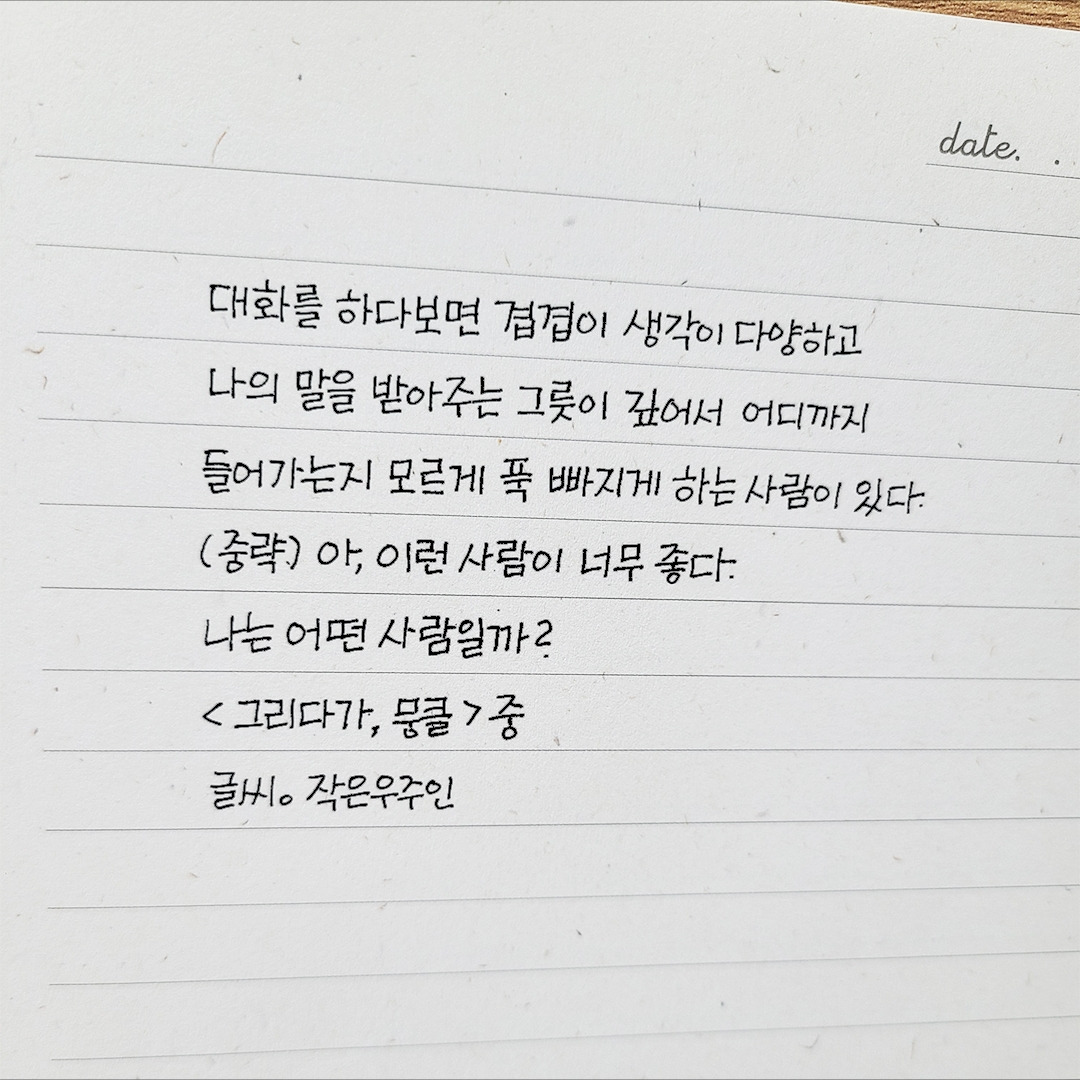 date. .
대화를 하다보면 겹겹이 생각이 다양하고
나의 말을 받아주는 그릇이 깊어서 어디까지
들어가는지 모르게 푹 빠지게 하는 사람이 있다.
(중략) 아, 이런 사람이 너무 좋다.
나는 어떤 사람일까?
<그리다가, 뭉클> 중
글씨。작은우주인